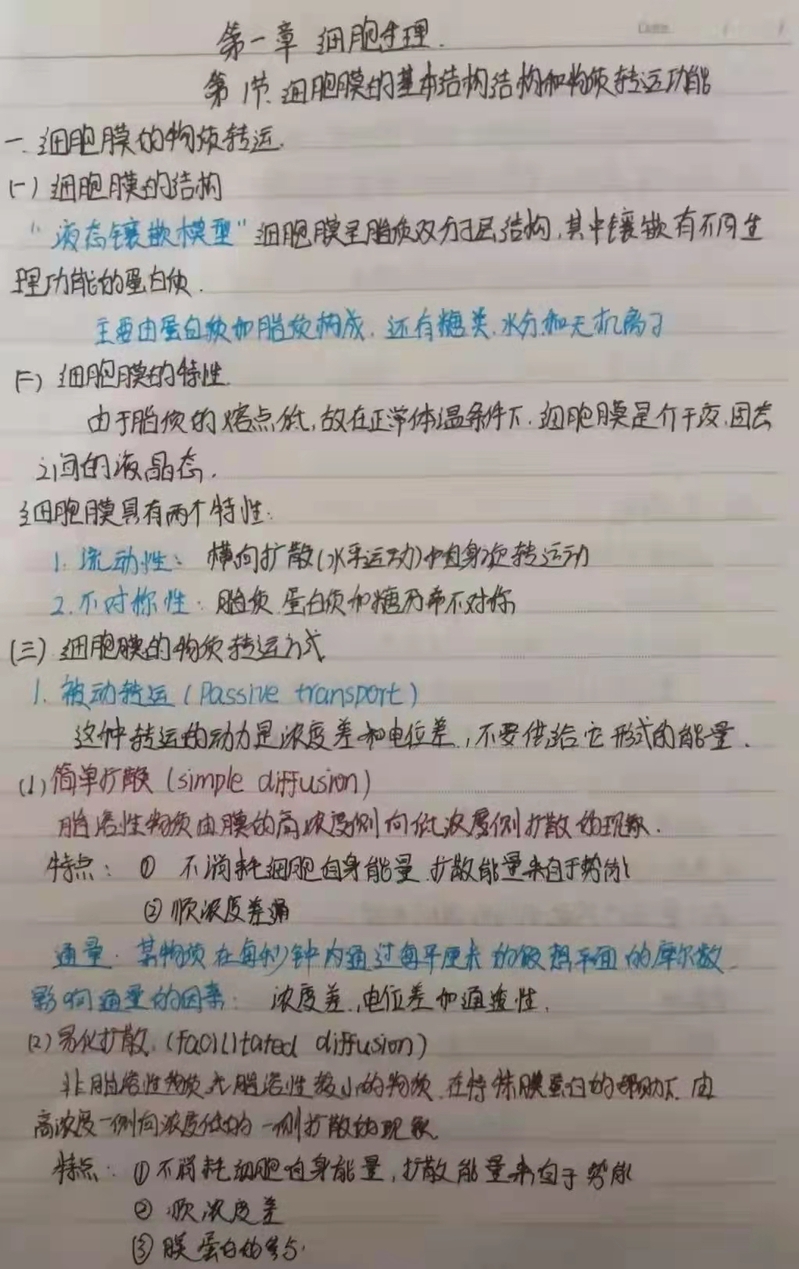 第一章 细胞生理.
第1节 细胞膜的基本结构结构和物质转运功能
一. 细胞膜的物质转运.
(一) 细胞膜的结构
“液态镶嵌模型” 细胞膜呈脂质双分子层结构,其中镶嵌有不同生
理功能的蛋白质.
主要由蛋白质和脂质构成. 还有糖类.水分和无机离子
(二) 细胞膜的特性.
由于脂质的熔点低,故在正常体温条件下.细胞膜是介于液.固态
之间的液晶态.
细胞膜具有两个特性:
1. 流动性: 横向扩散(水平运动)和自身旋转运动
2. 不对称性: 脂质.蛋白质和糖分布不对称
(三) 细胞膜的物质转运方式
1. 被动转运 (Passive transport)
这种转运的动力是浓度差和电位差,不要供给它形式的能量.
(1) 简单扩散 (simple diffusion)
脂溶性物质由膜的高浓度侧向低浓度侧扩散的现象.
特点: ① 不消耗细胞自身能量.扩散能量来自于势能
② 顺浓度差
通量. 某物质在每秒钟内通过每平厘米的假想平面的摩尔数
影响通量的因素: 浓度差.电位差和通透性.
(2) 易化扩散. (facilitated diffusion)
非脂溶性物质 脂溶性较小的物质.在特殊膜蛋白的帮助下.由
高浓度一侧向浓度低的一侧扩散的现象.
特点: ① 不消耗细胞自身能量,扩散能量来自于势能
② 顺浓度差
③ 膜蛋白的参与.